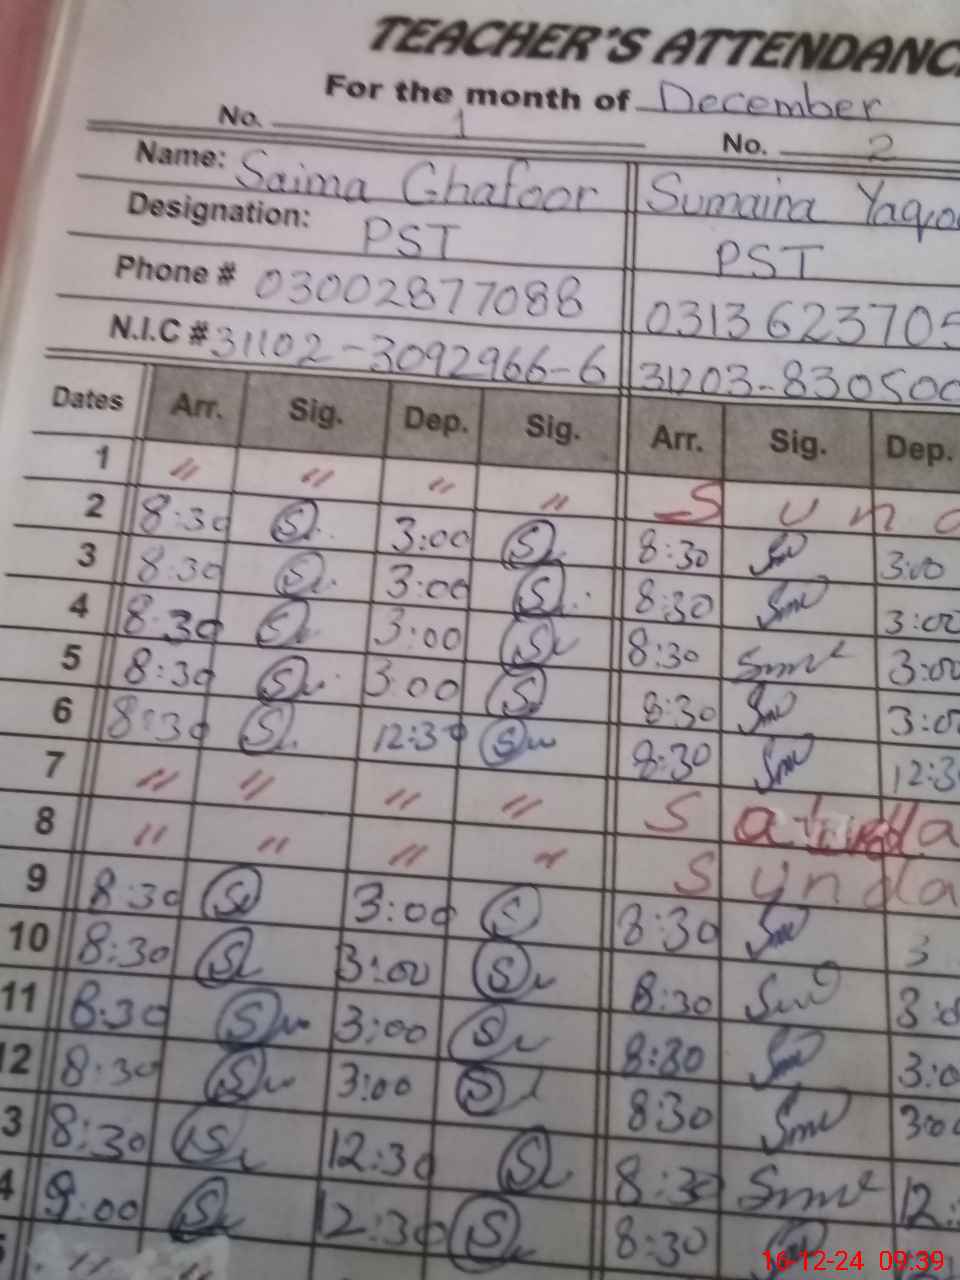 TEACHER'S ATTENDANC
For the month of December
No. 1 No. 2
Name: Saima Ghafoor Sumaira Yaqo
Designation: PST PST
Phone # 03002877088 0313623705
N.I.C # 31102-3092966-6 31203-830500
Dates Arr. Sig. Dep. Sig. Arr. Sig. Dep.
1 " " " " S u n d
2 8:30 3:00 8:30 3:00
3 8:30 3:00 8:30 3:00
4 8:30 3:00 8:30 3:00
5 8:30 3:00 8:30 3:00
6 8:30 12:30 8:30 12:3
7 " " " " S a t u r d a
8 " " " " S u n d a
9 8:30 3:00 8:30 3
10 8:30 3:00 8:30 3:0
11 8:30 3:00 8:30 3:0
12 8:30 3:00 8:30 3:00
3 8:30 12:30 8:30 12:
4 9:00 12:30 8:30
5 " "
16-12-24 09:39